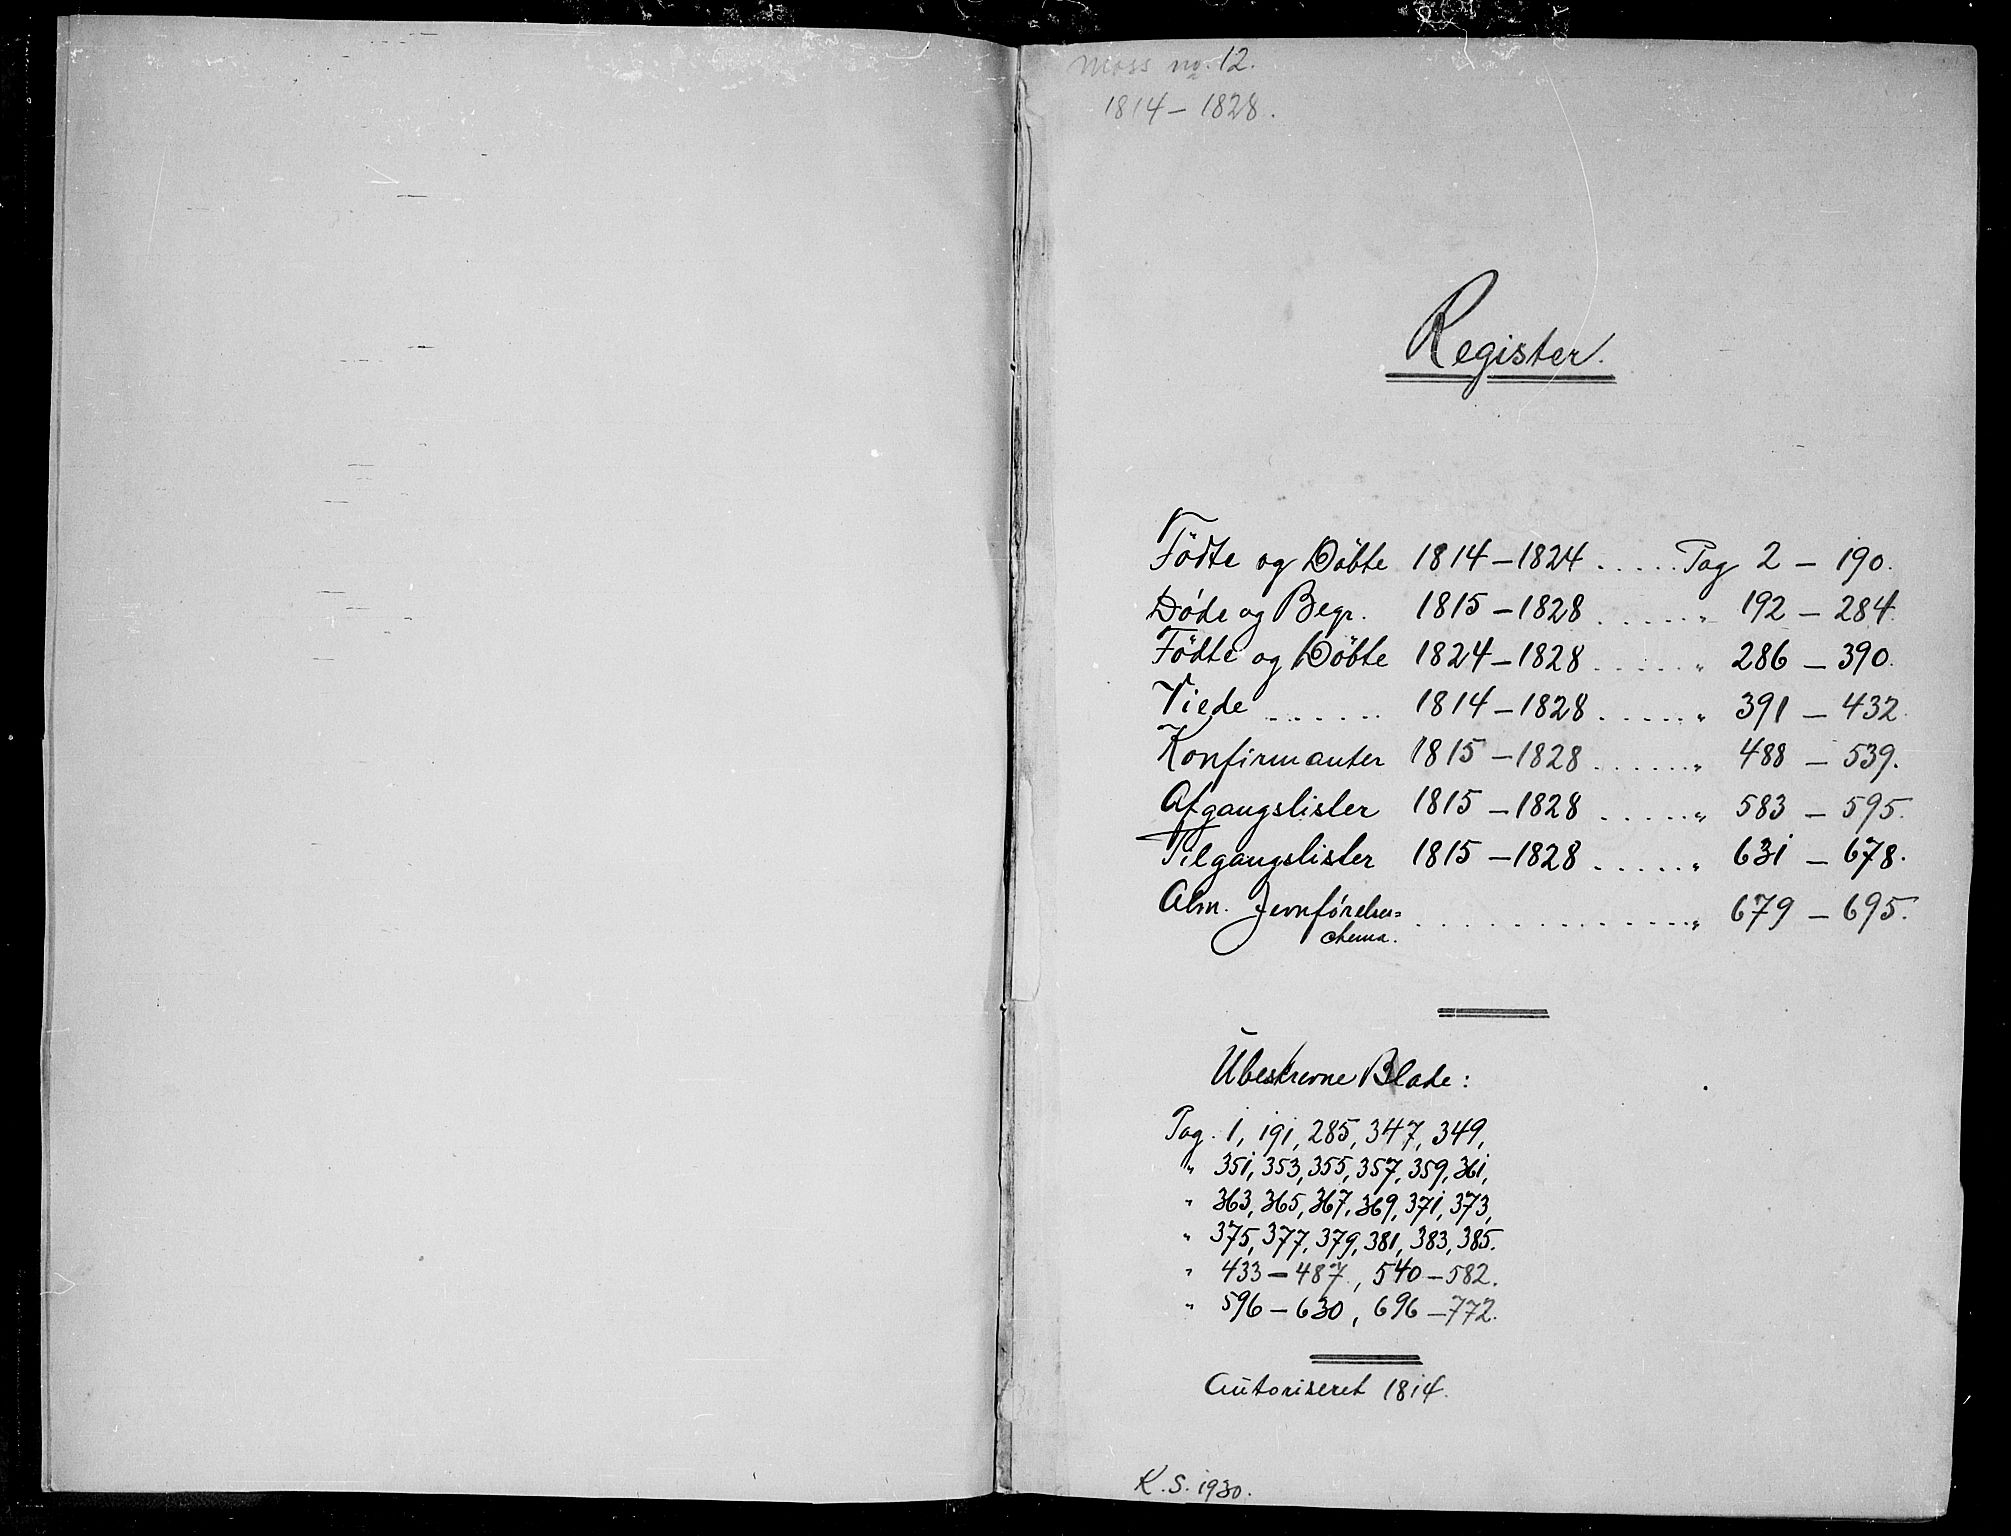 Moss no. 12.
1814 – 1828.
Register.
Födte og Döbte 1814 – 1824 ..... Pag 2 – 190.
Døde og Begr. 1815 – 1828 ..... " 192 – 284.
Födte og Döbte 1824 – 1828 ..... " 286 – 390.
Viede ...... 1814 – 1828 ..... " 391 – 432.
Konfirmanter 1815 – 1828 ..... " 488 – 539.
Afgangslister 1815 – 1828 ..... " 583 – 595.
Tilgangslister 1815 – 1828 ..... " 631 – 678.
Alm. Jevnførelses= ............. " 679 – 695.
chema.
Ubeskrevne Blade:
Pag. 1, 191, 285, 347, 349,
" 351, 353, 355, 357, 359, 361,
" 363, 365, 367, 369, 371, 373,
" 375, 377, 379, 381, 383, 385.
" 433 – 487, 540 – 582.
" 596 – 630, 696 – 772.
Autoriseret 1814.
K. S. 1930.